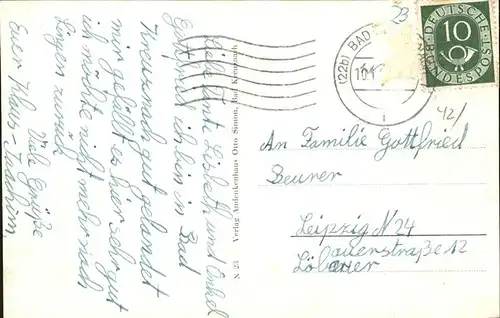 Liebe Tante Lisbeth und Onkel
Gottfried ich bin in Bad
Kreuznach gut gelandet
mir gefällt es hier sehr gut
ich möchte nicht mehr nach
zurück
Viele Grüße
Euer Klaus-Joachim,
N 23 Verlag Andenkenhaus Otto Simon, Bad Kreuznach
23
(22b) BAD
DEUTSCHE
10
BUNDESPOST
42/
An Familie Gottfried
Beurer
Leipzig N 24
Löbauerstraße 12